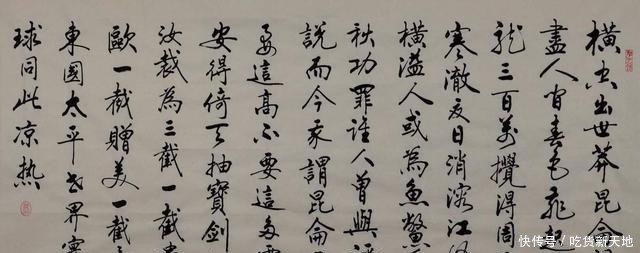 橫空出世莽昆侖
盡人間春色飛起
龍三百萬攪得周
寒澈夏日消溶江
橫溢人或為魚鱉
秋功罪誰人曾與
說而今我謂昆侖
要這高不要這多
安得倚天抽寶劍
汝裁為三截一截
歐一截贈美一截
東國太平世界寰
球同此涼熱
快传号/吃货新天地